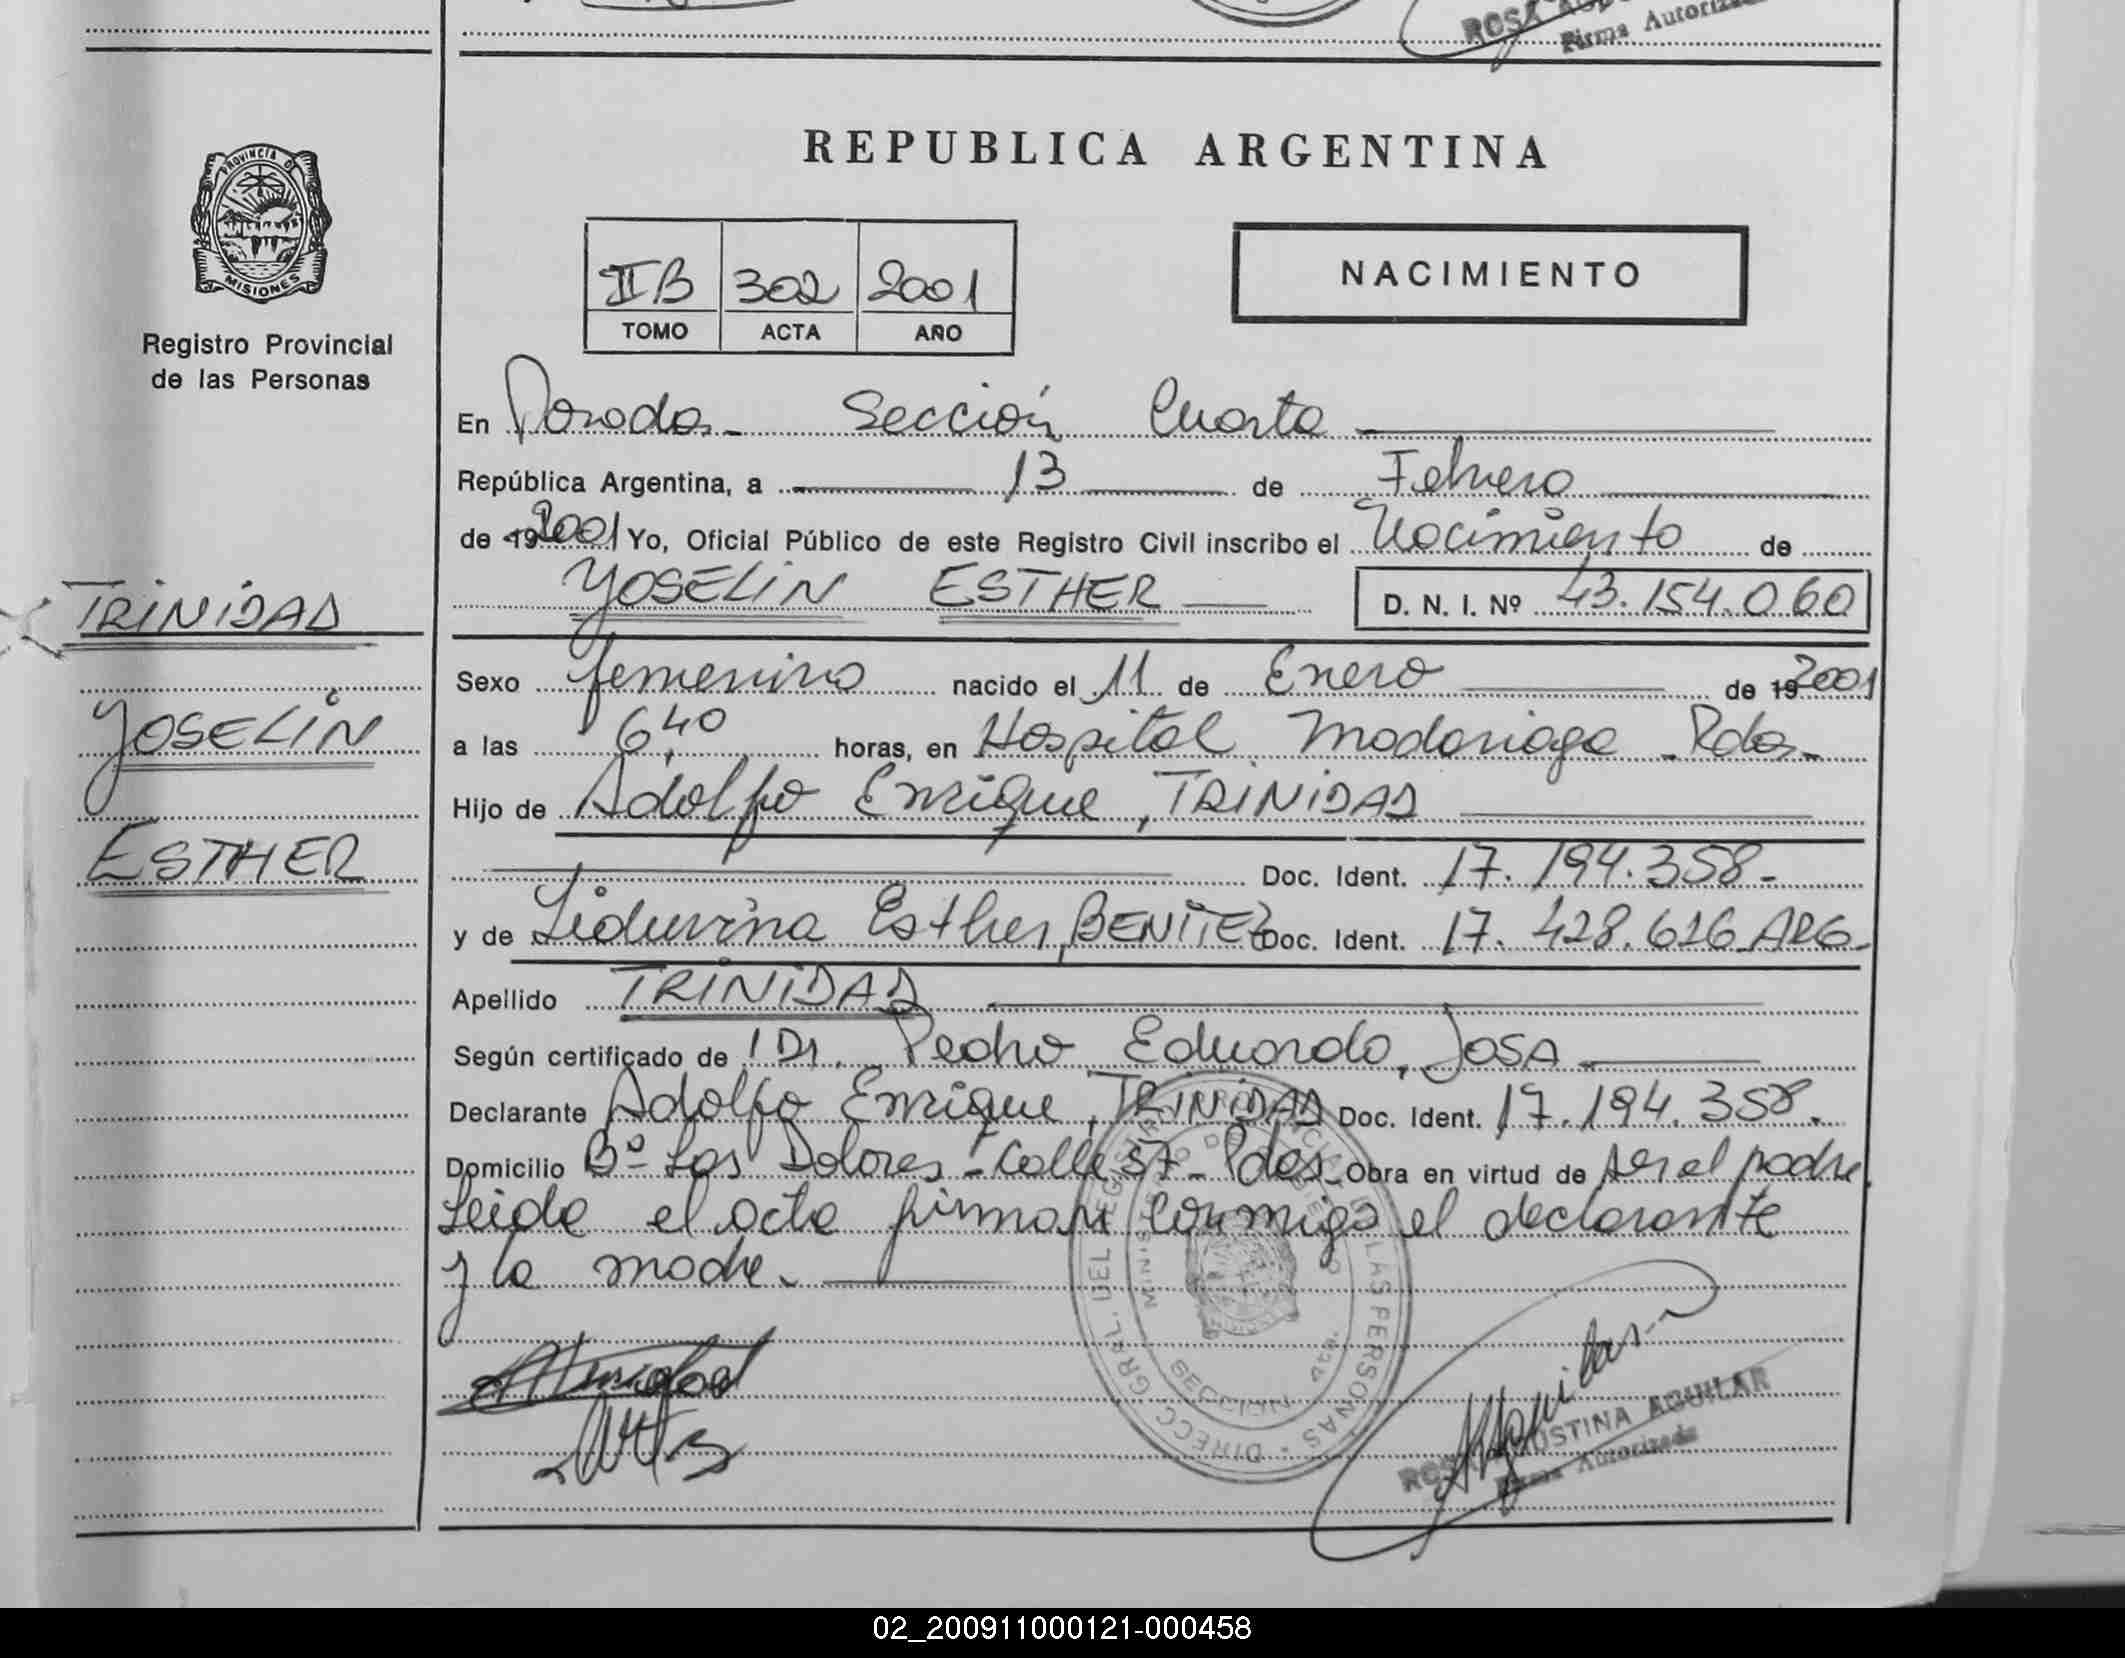 ROSA
Firma Autorizada
PROVINCIA DE
MISIONES
Registro Provincial
de las Personas
REPUBLICA ARGENTINA
IIB 302 2001
TOMO ACTA AÑO
NACIMIENTO
En Posadas - Sección Cuarta
República Argentina, a 13 de Febrero
de 19 2001 Yo, Oficial Público de este Registro Civil inscribo el Nacimiento de
YOSELIN ESTHER D. N. I. Nº 43.154.060
TRINIDAD
YOSELIN
ESTHER
Sexo femenino nacido el 11 de Enero de 19 2001
a las 6,40 horas, en Hospital Madariaga - Pdas -
Hijo de Adolfo Enrique, TRINIDAD
Doc. Ident. 17.194.358-
y de Liduvina Esther, BENITEZ Doc. Ident. 17.428.616 ARG.
Apellido TRINIDAD
Según certificado de Dr. Pedro Eduardo, JOSA
Declarante Adolfo Enrique, TRINIDAD Doc. Ident. 17.194.358.
Domicilio Bº Los Dolores - Calle 57 - Pdas. Obra en virtud de ser el padre
Leida el acta firman conmigo el declarante
y la madre.
DIRECC. GRAL. DEL REGISTRO PROVINCIAL DE LAS PERSONAS
SECCION 4ta.
ROSA AGUSTINA AGUILAR
Firma Autorizada
02_200911000121-000458